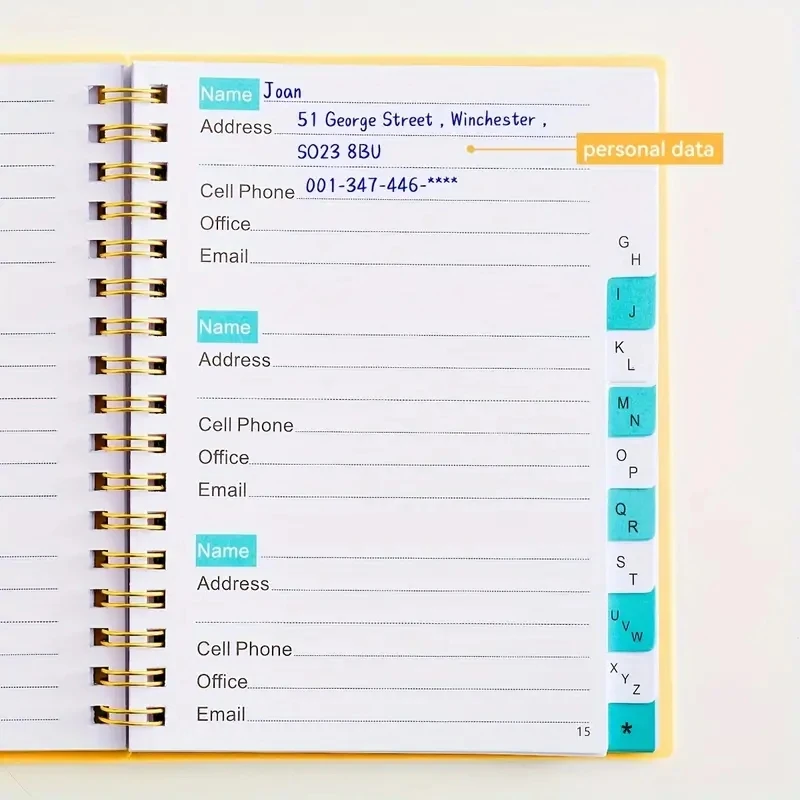 Name Joan
Address 51 George Street , Winchester ,
SO23 8BU
personal data
Cell Phone 001-347-446-****
Office
Email
Name
Address
Cell Phone
Office
Email
Name
Address
Cell Phone
Office
Email
15
G H
I J
K L
M N
O P
Q R
S T
U V W
X Y Z
*